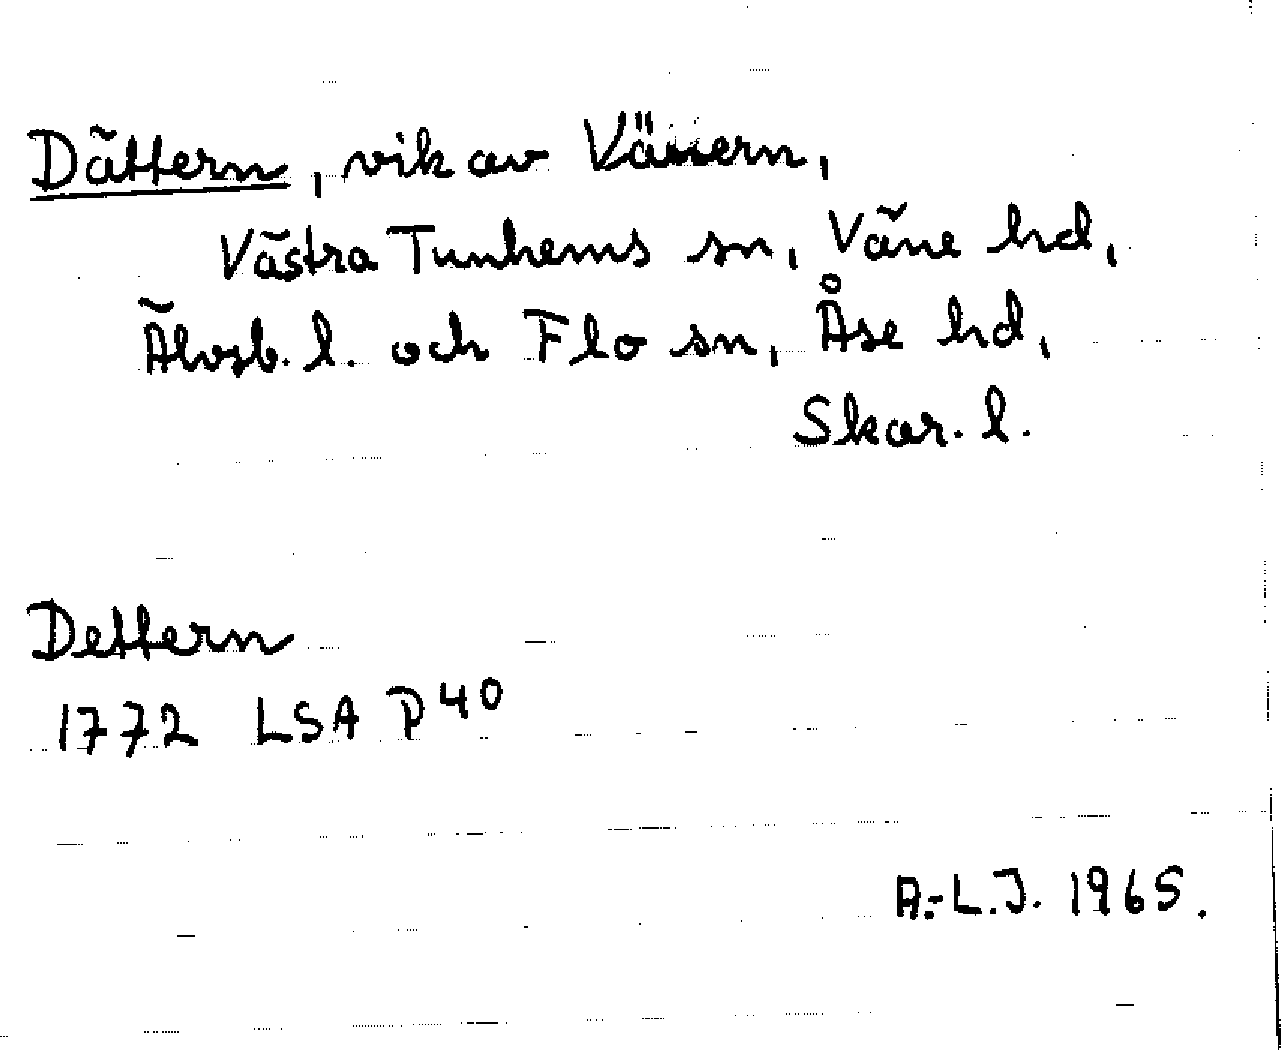 Dättern, vik av Vänern,
Västra Tunhems sn, Väne hd,
Älvsb. l. och Flo sn, Åse hd,
Skar. l.
Dettern
1772 LSA P 40
A.-L.J. 1965.